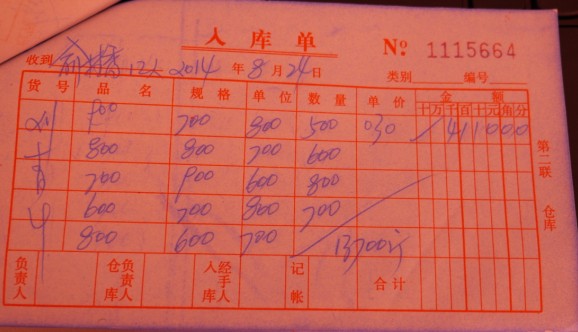 入库单
№ 1115664
收到 12人 2014年8月24日 类别 编号
货号 品名 规格 单位 数量 单价 金额
十万千百十元角分
900 700 800 500 030 411000
800 800 700 600
700 900 600 800
600 700 800 700
800 600 700 13700
第二联 仓库
负责人 仓库负责人 入库经手人 记帐 合计